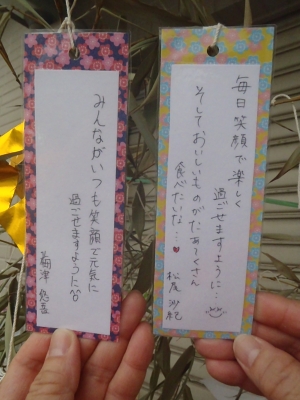 みんながいつも笑顔で元気に
過ごせますように
毎日笑顔で楽しく
過ごせますように…
そしておいしいものがたぁ〜くさん
食べたいな…♥
松尾 沙紀